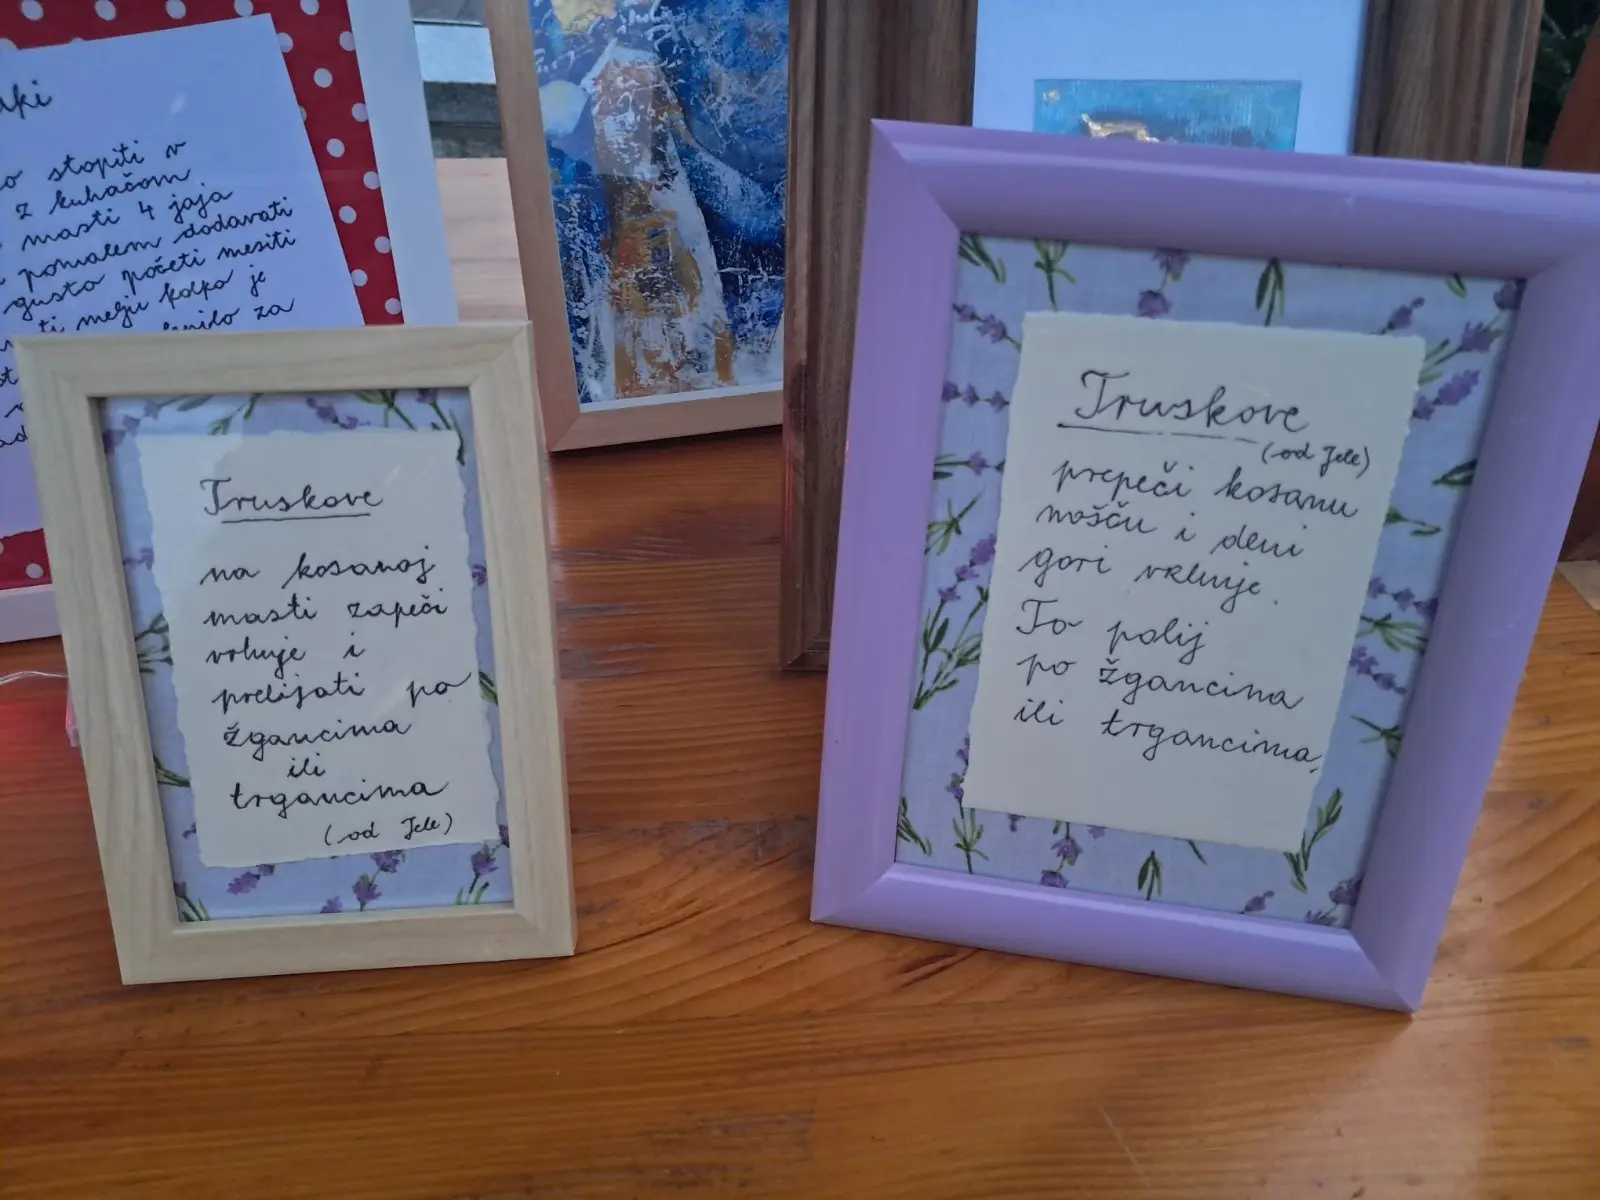 o stopiti v
z kuhačom
masti 4 jaja
pomalem dodavati
gusto početi mesiti
ti melju kolko je
za
Truskove
na kosanoj
masti zapeči
vrhnje i
prelijati po
žgancima
ili
trgancima
(od Jele)
Truskove
(od Jele)
prepeči kosanu
mošču i deni
gori vrhnje.
To polij
po žgancima
ili trgancima.